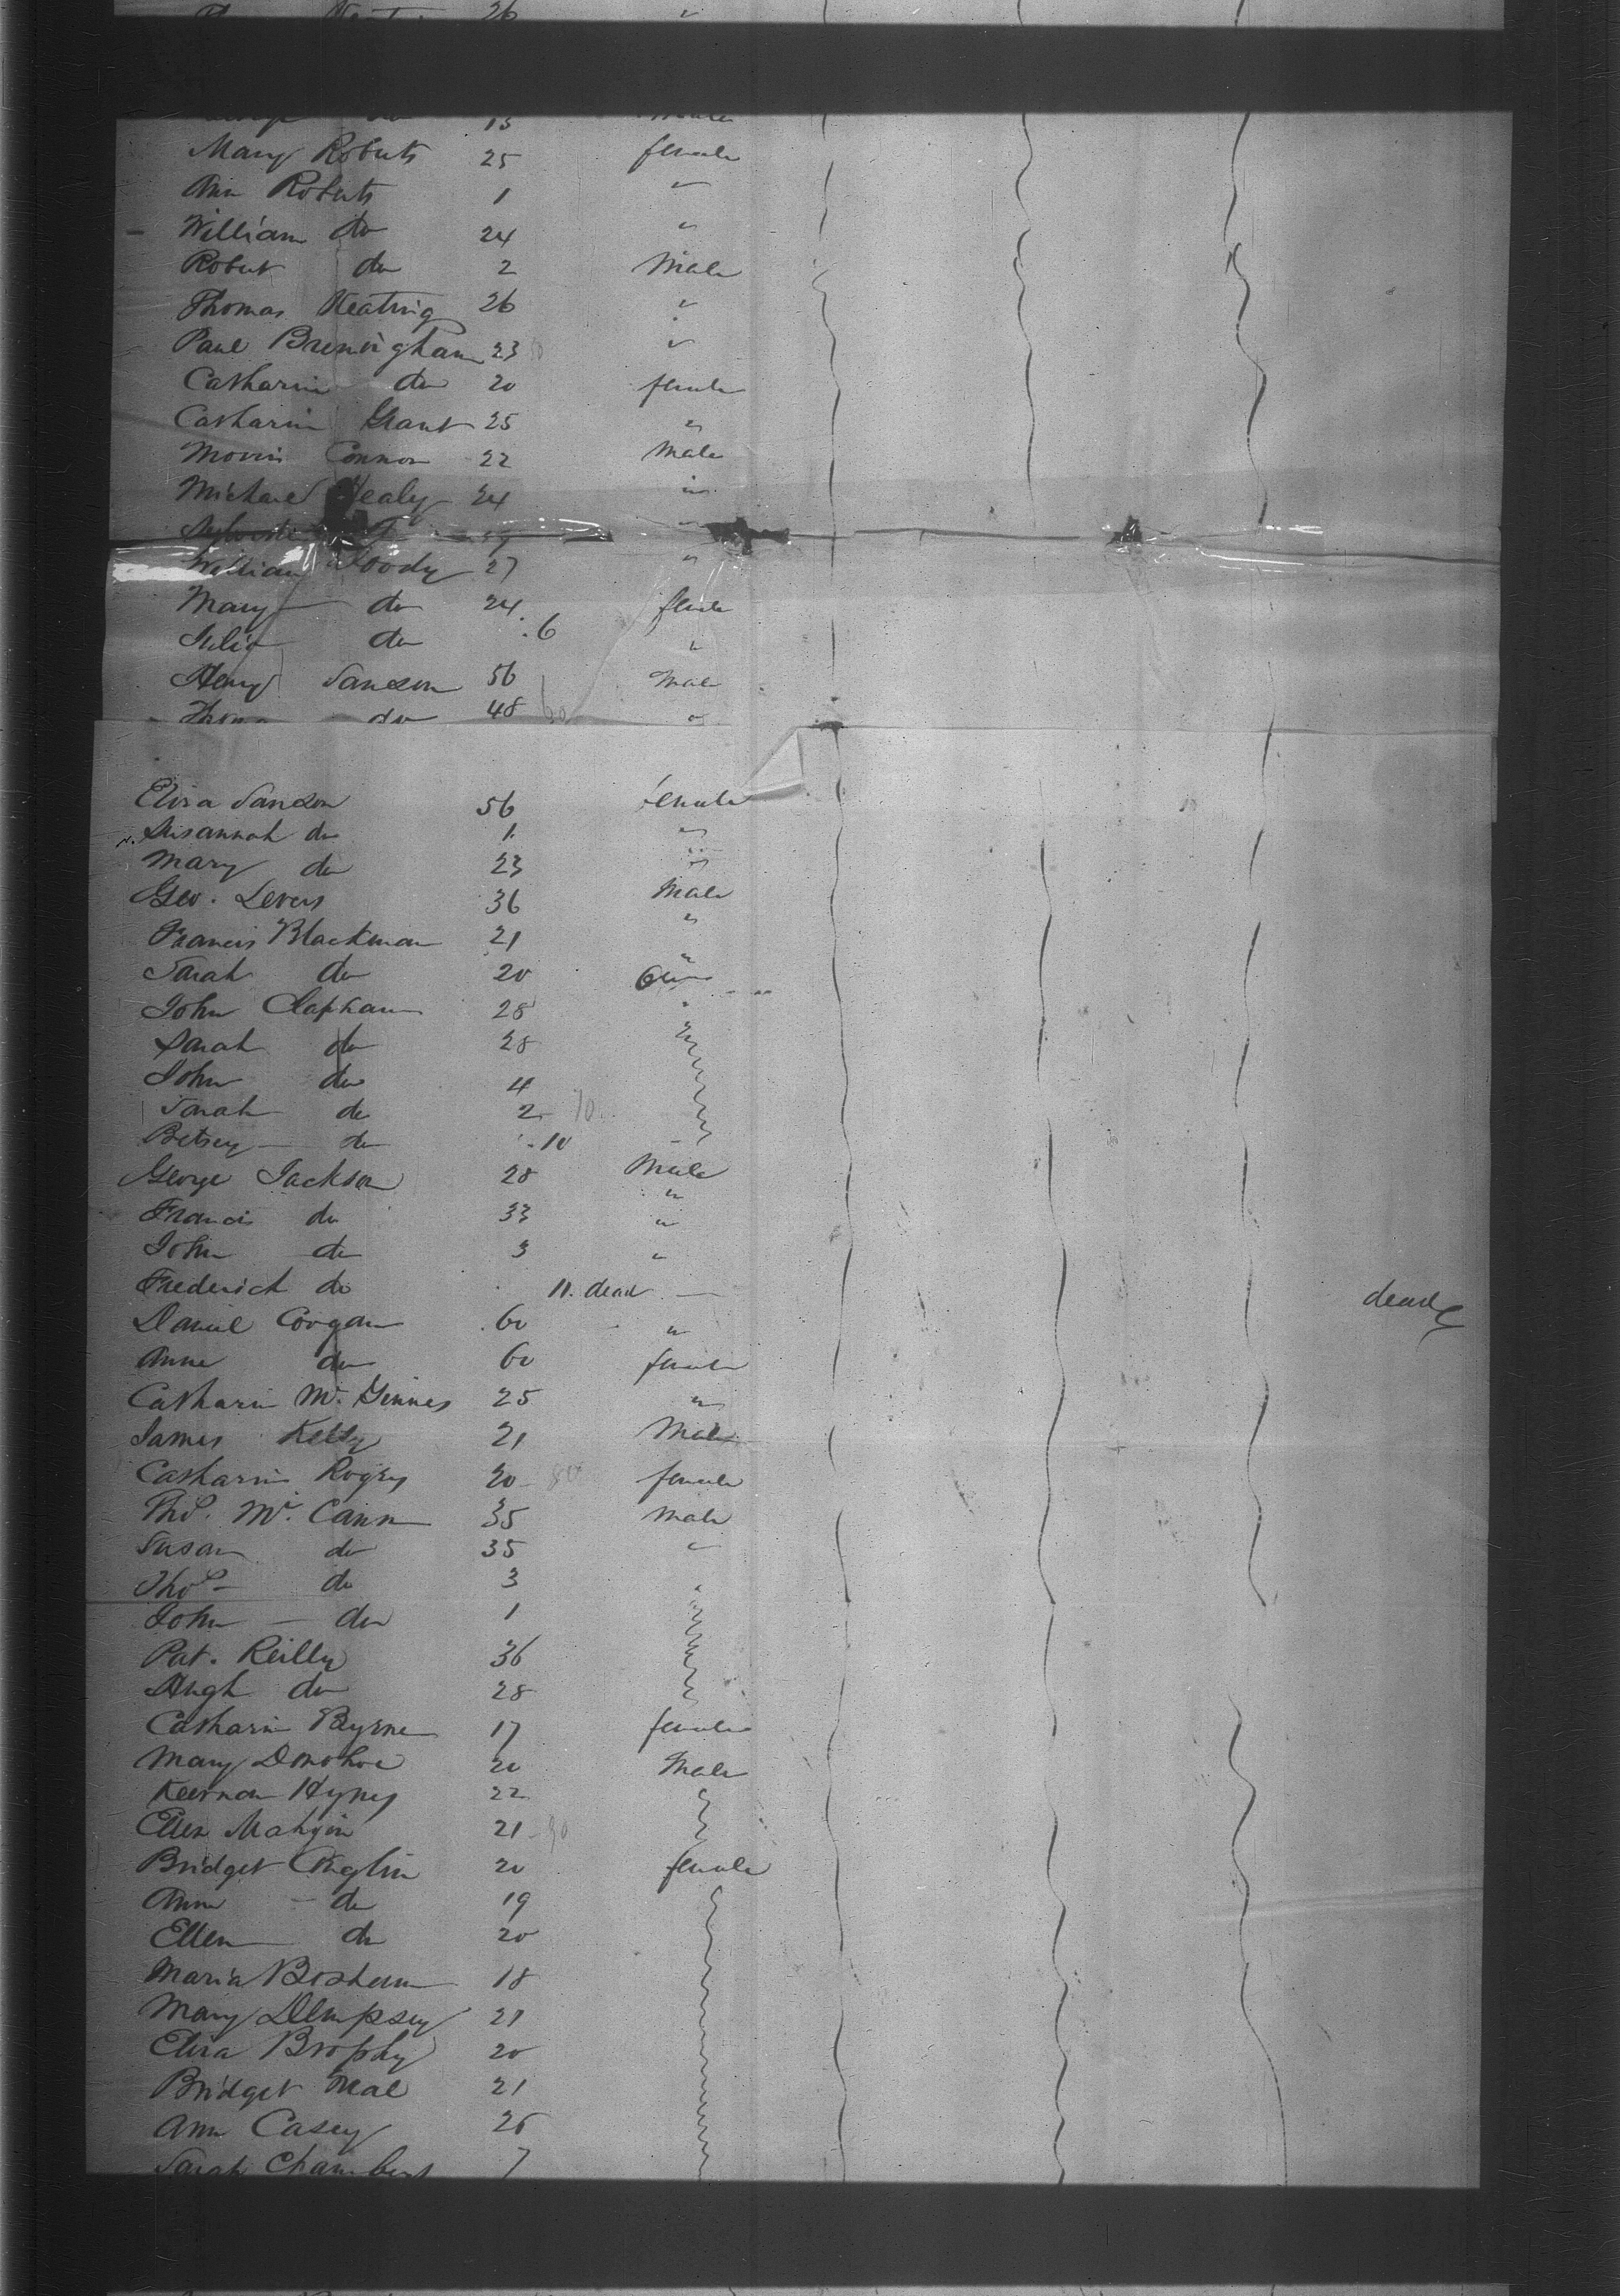 Keating 26 "
do 13 Male
Mary Roberts 25 female
Ann Roberts 1 "
William do 24 "
Robert do 2 Male
Thomas Keating 26 "
Paul Bremingham 23 "
Catharin do 20 female
Catharin Grant 25 "
Morris Connor 22 Male
Michael Healy 24 "
Sylvester
William Toody 27 "
Mary do 24 female
Julia do .6 "
Henry Sanson 56 Male
Thomas do 48 60 "
Eliza Sanson 56 female
Susannah do 1 "
Mary do 23 "
Geo. Levers 36 Male
Francis Blackman 21 "
Sarah do 20 "
John Clapham 28 "
Sarah do 28
John do 4
Sarah do 2 70
Betsey do .10
George Jackson 28 Male
Francis do 33 "
John do 3 "
Frederick do 11. dead dead
Daniel Coogan 60 "
Anne do 60 female
Catharin Mc. Ginnes 25 "
James Kelly 21 Male
Catharin Rogers 20 80 female
Thos. Mc. Cann 35 Male
Susan do 35 "
Thos do 3 "
John do 1
Pat. Reilly 36
Hugh do 28
Catharin Byrne 17 female
Mary Donohoe 20 Male
Keernan Hynes 22
Ellen Mahgin 21 90
Bridget 20 female
Ann do 19
Ellen do 20
Maria 18
Mary Dempsey 21
Eliza Brophy 20
Bridget Neal 21
Ann Casey 26
Sarah Chambers 7